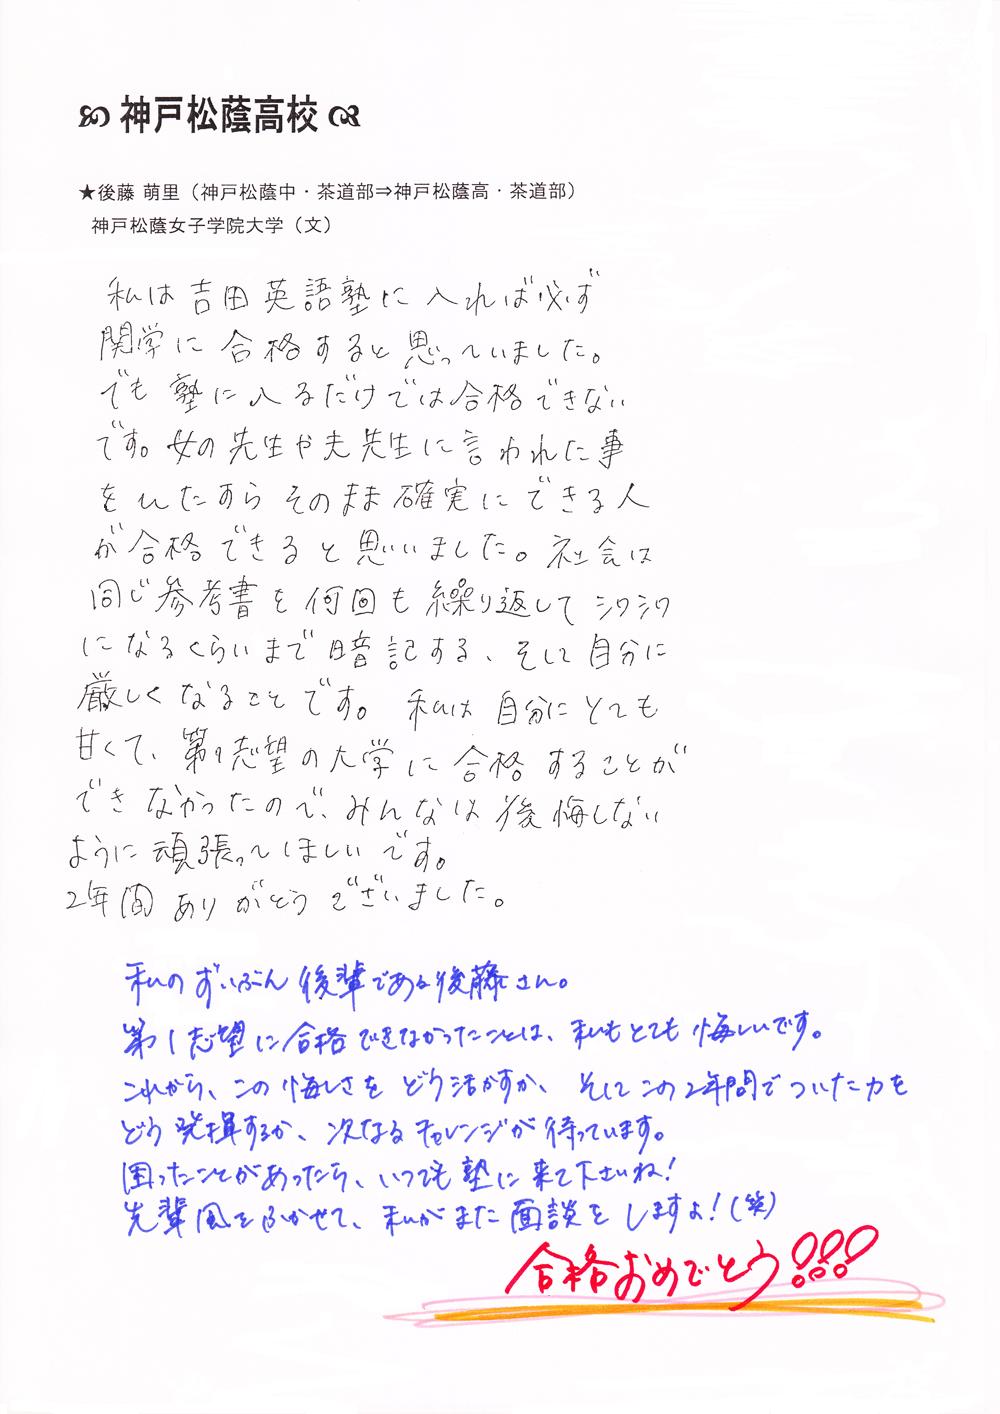 神戸松蔭高校
★後藤 萌里（神戸松蔭中・茶道部⇒神戸松蔭高・茶道部）
神戸松蔭女子学院大学（文）
私は吉田英語塾に入れば必ず
関学に合格すると思っていました。
でも塾に入るだけでは合格できない
です。女の先生や夫先生に言われた事
をひたすらそのまま確実にできる人
が合格できると思いました。社会は
同じ参考書を何回も繰り返してシワシワ
になるくらいまで暗記する、そして自分に
厳しくなることです。私は自分にとても
甘くて、第1志望の大学に合格することが
できなかったので、みんなは後悔しない
ように頑張ってほしいです。
2年間ありがとうございました。
私のずいぶん後輩である後藤さん。
第1志望に合格できなかったことは、私もとても悔しいです。
これから、この悔しさをどう活かすか、そしてこの2年間でついた力を
どう発揮するか、次なるチャレンジが待っています。
困ったことがあったら、いつでも塾に来て下さいね！
先輩風をふかせて、私がまた面談をしますよ！(笑)
合格おめでとう!!!